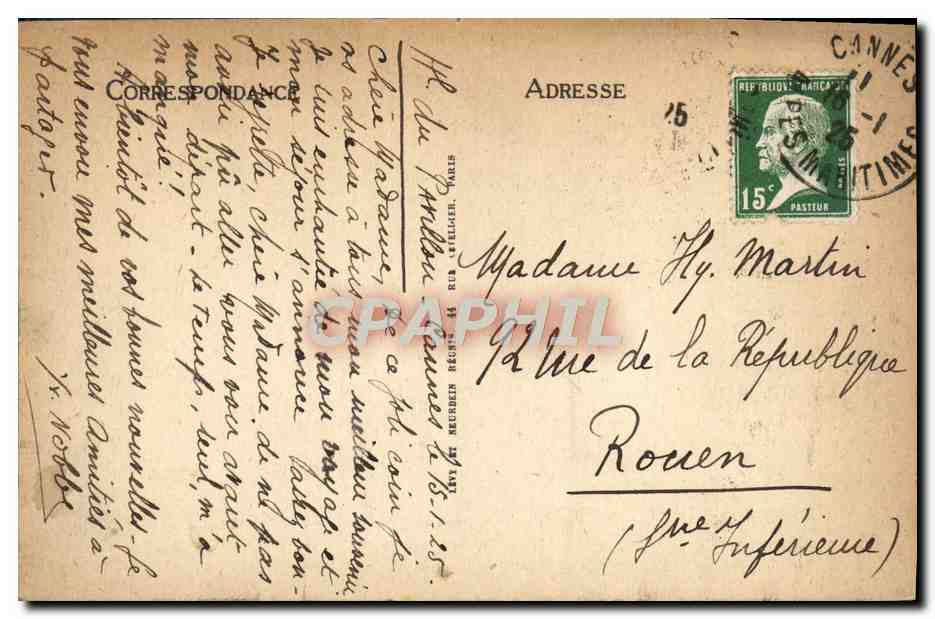 CORRESPONDANCE
ADRESSE
Hl. du Pavillon Cannes le 15-1-25.
Chère Madame, De ce joli coin je
vs adresse à tous mon meilleur souvenir
Je suis enchantée de mon voyage et
mon séjour s'annonce très bon-
Je regrette, chère Madame de ne pas
avoir pû aller vous voir avant
mon départ - le temps, seul, m'a
manqué!!
A bientôt de vos bonnes nouvelles - Je
vous envoie mes meilleures amitiés à
partager.
Y. Nobbe
LÉVY ET NEURDEIN RÉUNIS, 44 RUE LETELLIER, PARIS
CANNES
11
15 -1
25
ALPES MARITIMES
25
RÉPUBLIQUE FRANÇAISE
POSTES
15c
PASTEUR
Madame Hy. Martin
92 rue de la République
Rouen
(Sne Inférieure)
CPAPHIL